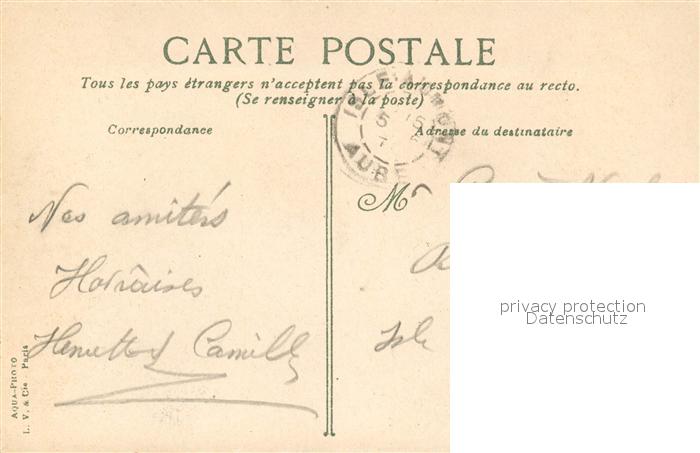 CARTE POSTALE
Tous les pays étrangers n'acceptent pas la correspondance au recto.
(Se renseigner à la poste)
Correspondance
Adresse du destinataire
AUB
Mr
Nos amitiés
Havraises
Camille
privacy protection
Datenschutz
AQUA-PHOTO
L. V. & Cie Paris